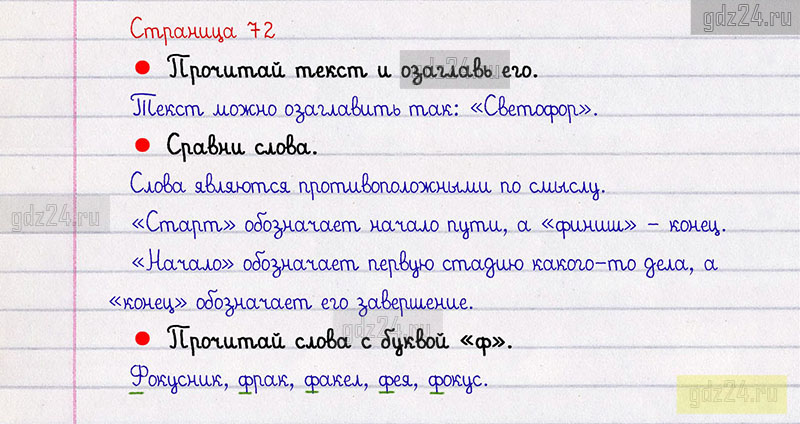 gdz24.ru
Страница 72
• Прочитай текст и озаглавь его.
gdz24.ru
Текст можно озаглавить так: «Светофор».
• Сравни слова.
Слова являются противоположными по смыслу.
gdz24.ru
«Старт» обозначает начало пути, а «финиш» – конец.
«Начало» обозначает первую стадию какого-то дела, а
«конец» обозначает его завершение.
gdz24.ru
• Прочитай слова с буквой «ф».
Фокусник, фрак, факел, фея, фокус.
gdz24.ru